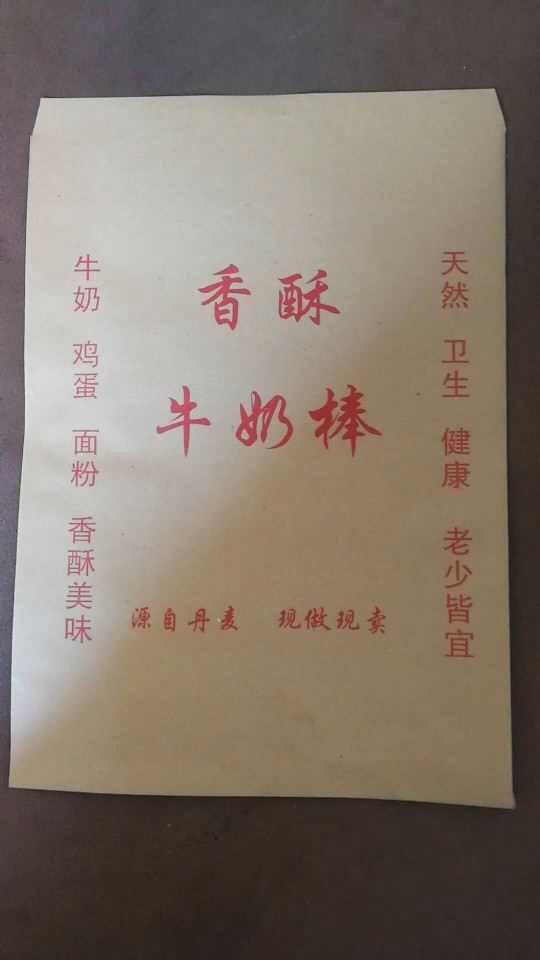 香酥
牛奶棒
牛奶 鸡蛋 面粉 香酥美味
天然 卫生 健康 老少皆宜
源自丹麦 现做现卖